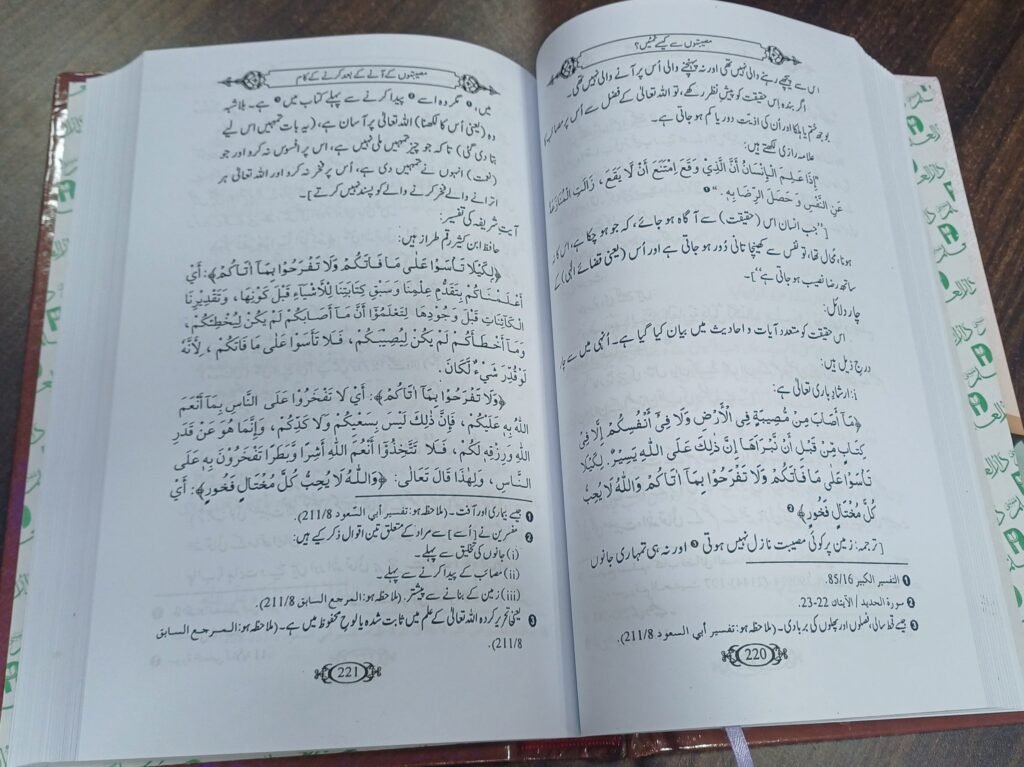 مصیبتوں سے کیسے نمٹیں؟
اس سے پیچھے رہنے والی نہیں تھی اور نہ پہنچنے والی اُس پر آنے والی نہیں تھی۔
اگر بندہ اِس حقیقت کو پیشِ نظر رکھے، تو اللہ تعالیٰ کے فضل سے اُس پر مصائب کا
بوجھ ختم یا ہلکا اور اُن کی اذیّت دور یا کم ہو جاتی ہے۔
علامہ رازی لکھتے ہیں:
"إِذَا عَلِمَ الْإِنْسَانُ أَنَّ الَّذِيْ وَقَعَ امْتَنَعَ أَنْ لَّا يَقَعَ، زَالَتِ الْمُنَازَعَةُ
عَنِ النَّفْسِ وَحَصَلَ الرِّضَا بِهِ." ❶
["جب انسان اس (حقیقت) سے آگاہ ہو جائے، کہ جو ہو چکا ہے، اس کا نہ
ہونا، مُحال تھا، تو نفس سے کھینچا تانی دُور ہو جاتی ہے اور اُس (یعنی قضائے الٰہی) کے
ساتھ رضا نصیب ہو جاتی ہے"]۔
چار دلائل:
اس حقیقت کو متعدد آیات و احادیث میں بیان کیا گیا ہے۔ اُنہی میں سے چار
درج ذیل ہیں:
i: ارشادِ باری تعالیٰ ہے:
﴿مَآ أَصَابَ مِنْ مُّصِيبَةٍ فِي الْأَرْضِ وَلَا فِيْٓ أَنْفُسِكُمْ إِلَّا فِيْ
كِتَابٍ مِّنْ قَبْلِ أَنْ نَّبْرَأَهَا إِنَّ ذَلِكَ عَلَى اللّٰهِ يَسِيْرٌ. لِكَيْلَا
تَأْسَوْا عَلَى مَا فَاتَكُمْ وَلَا تَفْرَحُوْا بِمَآ اٰتَاكُمْ وَاللّٰهُ لَا يُحِبُّ
كُلَّ مُخْتَالٍ فَخُورٍ﴾ ❷
[ترجمہ: زمین پر کوئی مصیبت نازل نہیں ہوتی ❸ اور نہ ہی تمہاری جانوں
❶ التفسير الكبير 85/16.
❷ سورة الحديد / الآيتان 22-23.
❸ جیسے قحط سالی، فصلوں اور پھلوں کی بربادی۔ (ملاحظہ ہو: تفسیر أبي السعود 211/8).
220
مصیبتوں کے آنے کے بعد کرنے کے کام
میں، ❶ مگر وہ اسے ❷ پیدا کرنے سے پہلے کتاب میں ❸ ہے۔ بلاشبہ
وہ (یعنی اُس کا لکھنا) اللہ تعالیٰ پر آسان ہے، (یہ بات تمہیں اس لیے
بتا دی گئی) تاکہ جو چیز تمہیں ملی نہیں ہے، اس پر افسوس نہ کرو اور جو
(نعمت) انہوں نے تمہیں دی ہے، اُس پر فخر نہ کرو اور اللہ تعالیٰ ہر
اترانے والے فخر کرنے والے کو پسند نہیں کرتے]۔
آیتِ شریفہ کی تفسیر:
حافظ ابن کثیر رقم طراز ہیں:
﴿لِكَيْلَا تَأْسَوْا عَلَى مَا فَاتَكُمْ وَلَا تَفْرَحُوْا بِمَآ اٰتَاكُمْ﴾: أَيْ
أَعْلَمْنَاكُمْ بِتَقَدُّمِ عِلْمِنَا وَسَبْقِ كِتَابَتِنَا لِلْأَشْيَآءِ قَبْلَ كَوْنِهَا، وَتَقْدِيْرِنَا
الْكَآئِنَاتِ قَبْلَ وُجُوْدِهَا لِتَعْلَمُوْآ أَنَّ مَآ أَصَابَكُمْ لَمْ يَكُنْ لِيُخْطِئَكُمْ،
وَمَآ أَخْطَأَكُمْ لَمْ يَكُنْ لِيُصِيْبَكُمْ، فَلَا تَأْسَوْا عَلَى مَا فَاتَكُمْ، لِأَنَّهُ
لَوْ قُدِّرَ شَيْءٌ لَّكَانَ.
﴿وَلَا تَفْرَحُوا بِمَآ اٰتَاكُمْ﴾: أَيْ لَا تَفْخَرُوْا عَلَى النَّاسِ بِمَآ أَنْعَمَ
اللّٰهُ بِهِ عَلَيْكُمْ، فَإِنَّ ذٰلِكَ لَيْسَ بِسَعْيِكُمْ وَلَا كَدِّكُمْ، وَإِنَّمَا هُوَ عَنْ قَدَرِ
اللّٰهِ وَرِزْقِهِ لَكُمْ، فَلَا تَتَّخِذُوْآ أَنْعُمَ اللّٰهِ أَشَرًا وَّبَطَرًا تَفْخَرُوْنَ بِهِ عَلَى
النَّاسِ، وَلِهٰذَا قَالَ تَعَالَى: ﴿وَاللّٰهُ لَا يُحِبُّ كُلَّ مُخْتَالٍ فَخُورٍ﴾: أَيْ
❶ جیسے بیماری اور آفت۔ (ملاحظہ ہو: تفسیر أبي السّعود 211/8).
❷ مفسرین نے [اُسے] سے مراد کے متعلق تین اقوال ذکر کیے ہیں:
(i) جانوں کی تخلیق سے پہلے۔
(ii) مصائب کے پیدا کرنے سے پہلے۔
(iii) زمین کے بنانے سے پیشتر۔ (ملاحظہ ہو: المرجع السابق 211/8).
❸ یعنی تحریر کردہ اللہ تعالیٰ کے علم میں ثابت شدہ یا لوحِ محفوظ میں ہے۔ (ملاحظہ ہو: المرجع السابق
211/8).
221